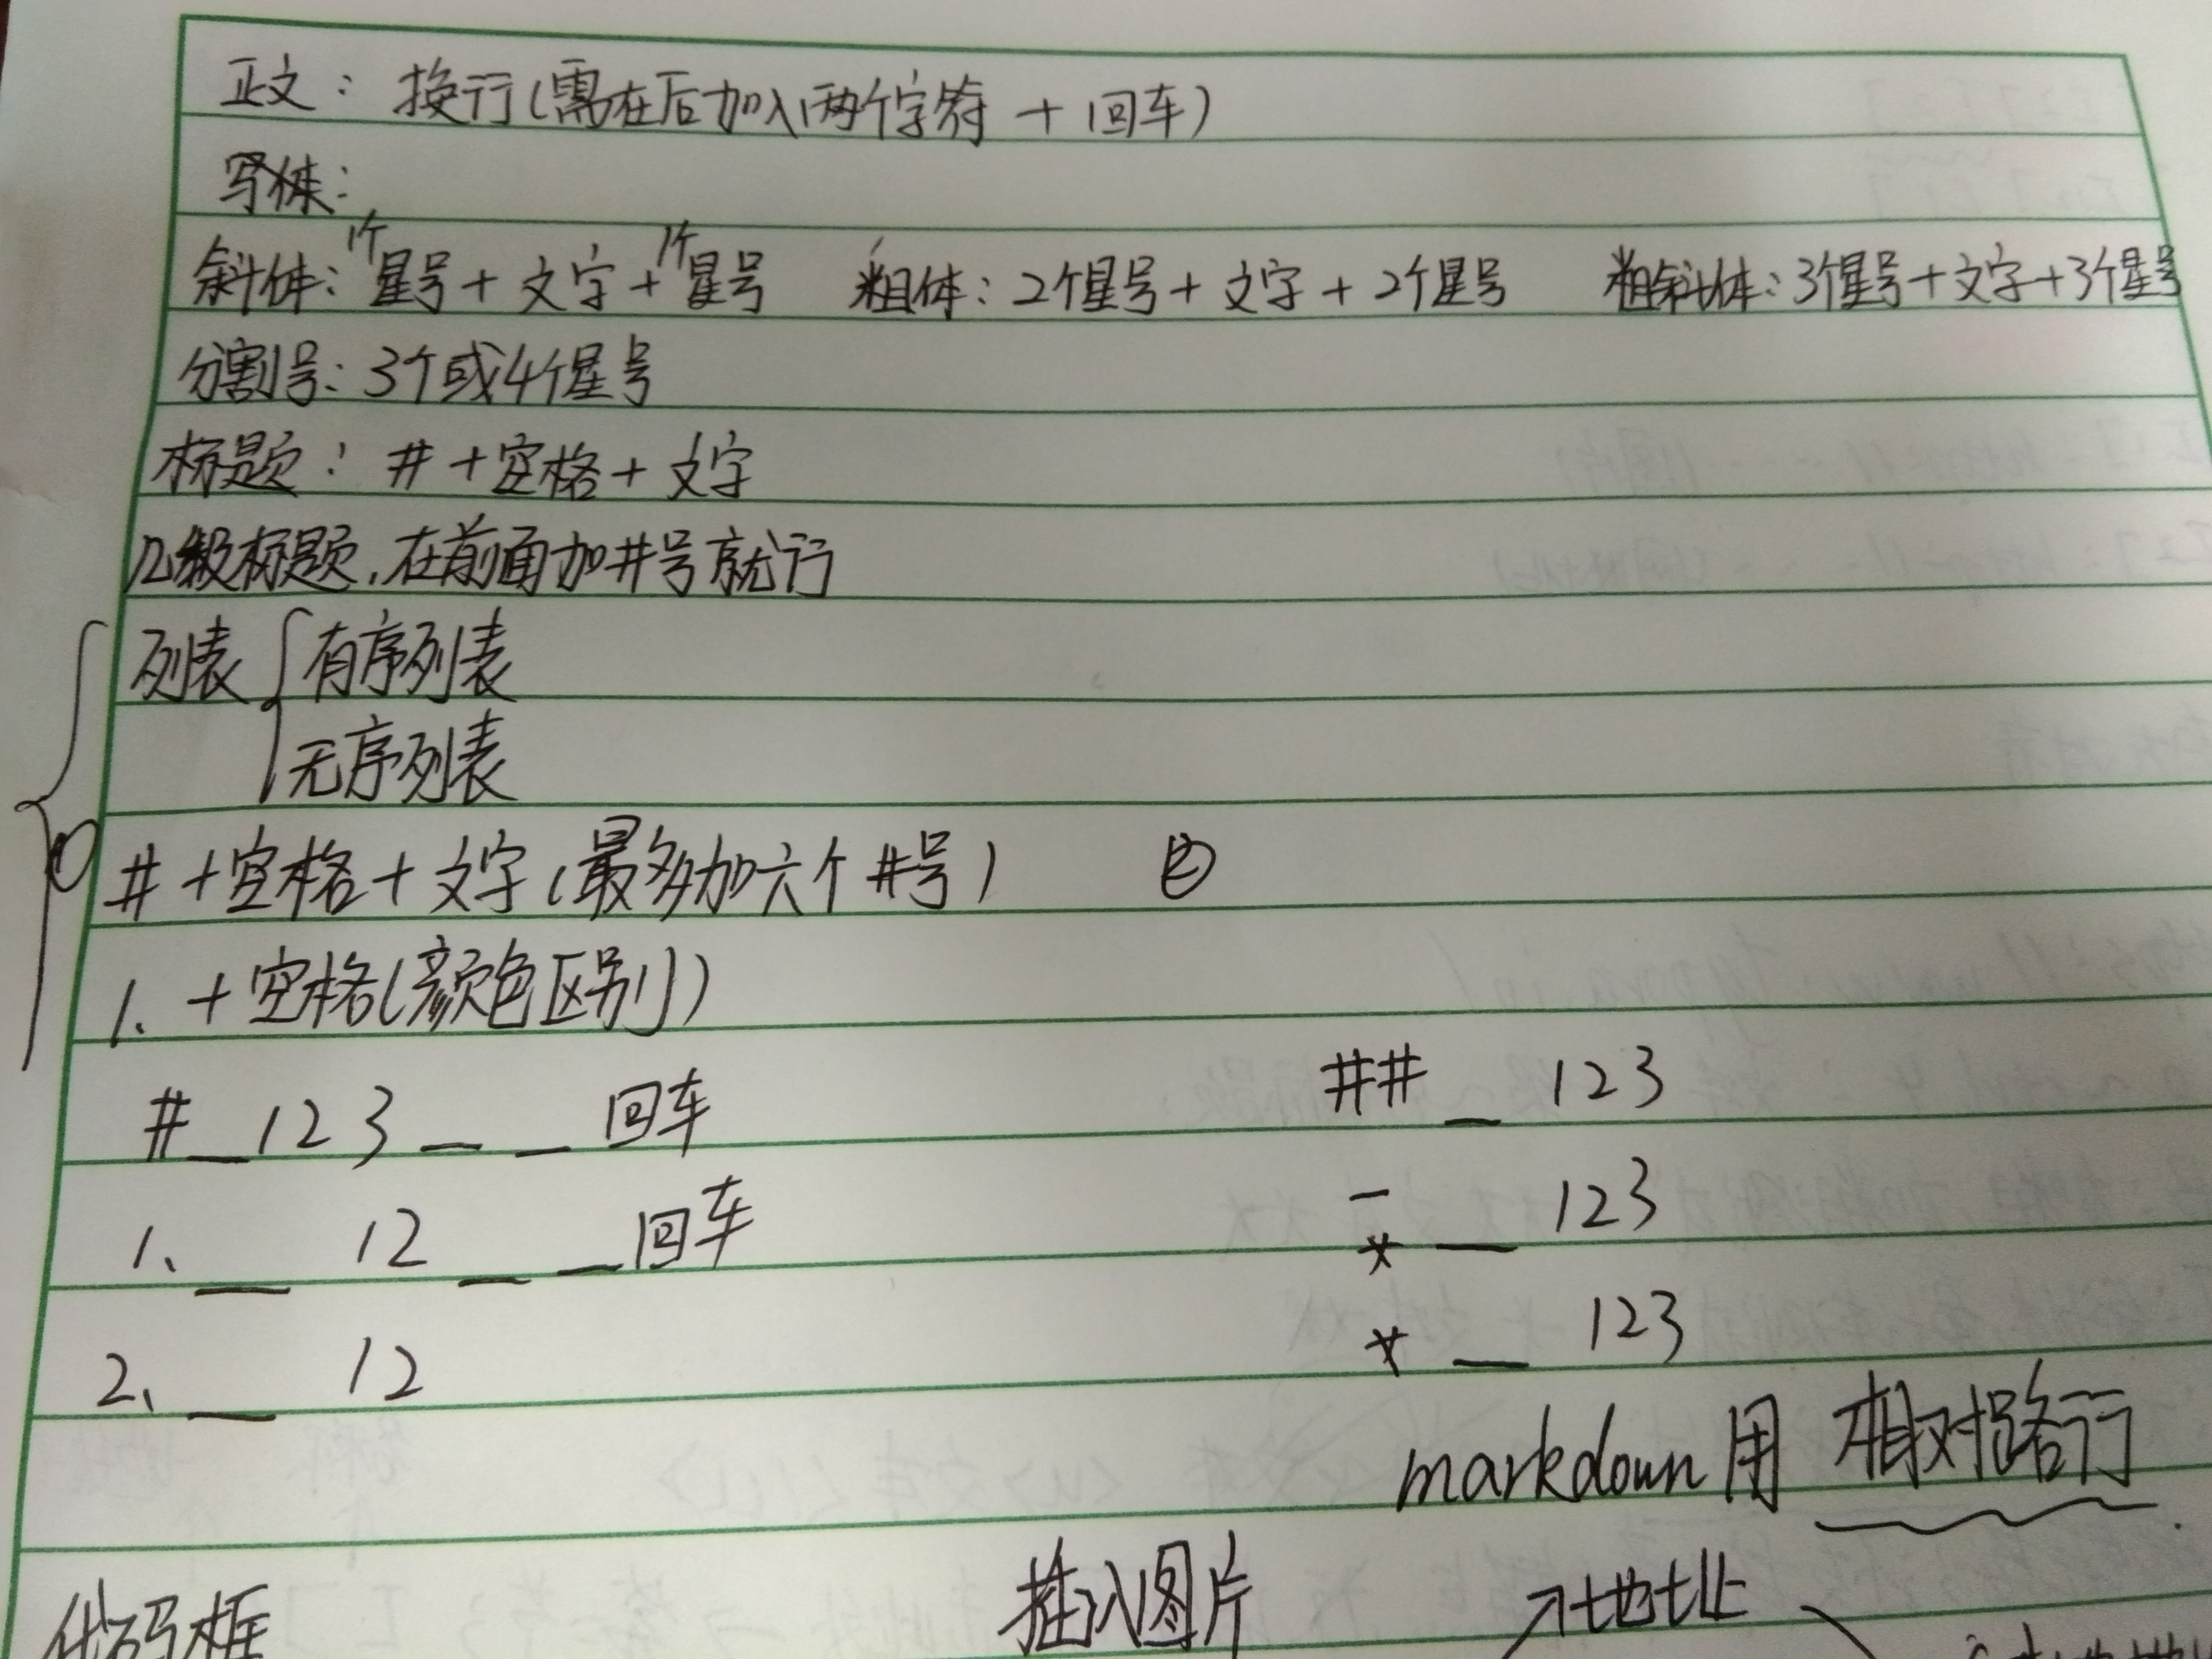 正文：换行(需在后加入两个字符 + 回车)
字体：
斜体：1个星号 + 文字 + 1个星号 粗体：2个星号 + 文字 + 2个星号 粗斜体：3个星号 + 文字 + 3个星号
分割号：3个或4个星号
标题：# + 空格 + 文字
几级标题，在前面加井号就行
列表 { 有序列表
无序列表
# + 空格 + 文字 (最多加六个#号)
1. + 空格(颜色区别)
# _ 123 _ _ 回车 ## _ 123
1、 _ 12 _ _ 回车 - 123
* _ 123
2、 _ 12 * _ 123
markdown 用 相对路行
代码框 插入图片 地址